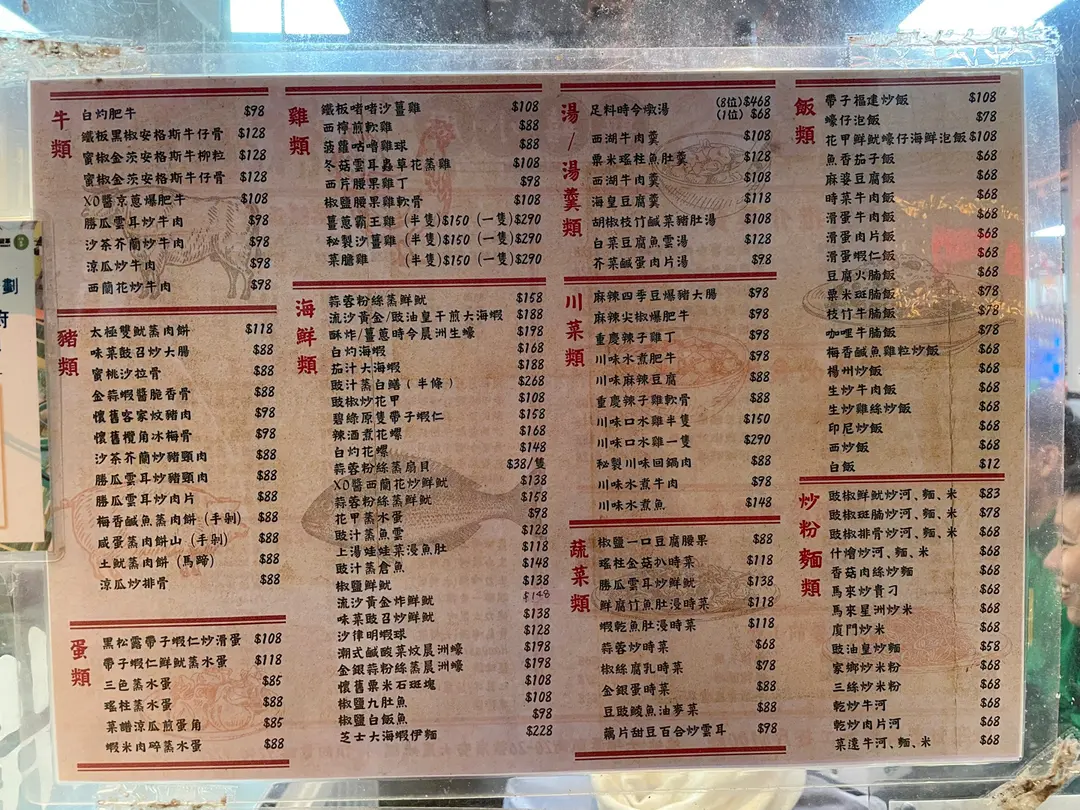 牛類
白灼肥牛 $98
鐵板黑椒安格斯牛仔骨 $128
蜜椒金茨安格斯牛柳粒 $128
蜜椒金茨安格斯牛仔骨 $128
XO醬京蔥爆肥牛 $108
勝瓜雲耳炒牛肉 $98
沙茶芥蘭炒牛肉 $98
涼瓜炒牛肉 $98
西蘭花炒牛肉 $98
豬類
太極雙魷蒸肉餅 $118
味菜鼓召炒大腸 $88
蜜桃沙拉骨 $88
金蒜蝦醬脆香骨 $88
懷舊客家炆豬肉 $98
懷舊欖角冰梅骨 $98
沙茶芥蘭炒豬頸肉 $88
勝瓜雲耳炒豬頸肉 $88
勝瓜雲耳炒肉片 $88
梅香鹹魚蒸肉餅（手剁） $88
咸蛋蒸肉餅山（手剁） $88
土魷蒸肉餅（馬蹄） $88
涼瓜炒排骨 $88
蛋類
黑松露帶子蝦仁炒滑蛋 $108
帶子蝦仁鮮魷蒸水蛋 $118
三色蒸水蛋 $85
瑤柱蒸水蛋 $88
菜譜涼瓜煎蛋角 $85
蝦米肉碎蒸水蛋 $88
雞類
鐵板啫啫沙薑雞 $108
西檸煎軟雞 $88
菠蘿咕嚕雞球 $88
冬菇雲耳蟲草花蒸雞 $108
西片腰果雞丁 $98
椒鹽腰果雞軟骨 $108
薑蔥霸王雞（半隻）$150（一隻）$290
秘製沙薑雞（半隻）$150（一隻）$290
菜膽雞（半隻）$150（一隻）$290
海鮮類
蒜蓉粉絲蒸鮮魷 $158
流沙黃金/豉油皇干煎大海蝦 $188
酥炸/薑蔥時今晨洲生蠔 $138
白灼海蝦 $168
茄汁大海蝦 $188
豉汁蒸白鱔（半條） $268
豉椒炒花甲 $108
碧綠原隻帶子蝦仁 $158
辣酒煮花螺 $168
白灼花螺 $148
蒜蓉粉絲蒸扇貝 $38/隻
XO醬西蘭花炒鮮魷 $138
蒜蓉粉絲蒸鮮魷 $158
花甲蒸水蛋 $98
豉汁蒸魚雲 $128
上湯娃娃菜浸魚肚 $118
豉汁蒸倉魚 $148
椒鹽鮮魷 $138
流沙黃金炸鮮魷 $148
味菜豉召炒鮮魷 $138
沙律明蝦球 $128
潮式鹹酸菜炆晨洲蠔 $198
金銀蒜粉絲蒸晨洲蠔 $198
懷舊粟米石斑塊 $108
椒鹽九肚魚 $108
椒鹽白飯魚 $98
芝士大海蝦伊麵 $228
湯/湯羹類
足料時今燉湯 (8位)$468
(1位) $68
西湖牛肉羹 $108
粟米瑤柱魚肚羹 $128
西湖牛肉羹 $108
海皇豆腐羹 $118
胡椒枝竹鹹菜豬肚湯 $108
白菜豆腐魚雲湯 $128
芥菜鹹蛋肉片湯 $98
川菜類
麻辣四季豆爆豬大腸 $98
麻辣尖椒爆肥牛 $98
重慶辣子雞丁 $98
川味水煮肥牛 $98
川味麻辣豆腐 $88
重慶辣子雞軟骨 $88
川味口水雞半隻 $150
川味口水雞一隻 $290
秘製川味回鍋肉 $88
川味水煮牛肉 $98
川味水煮魚 $148
蔬菜類
椒鹽一口豆腐腰果 $88
瑤柱金菇扒時菜 $118
勝瓜雲耳炒鮮魷 $138
鮮腐竹魚肚浸時菜 $118
蝦乾魚肚浸時菜 $118
蒜蓉炒時菜 $68
椒絲腐乳時菜 $78
金銀蛋時菜 $88
豆豉鯪魚油麥菜 $88
藕片甜豆百合炒雲耳 $98
飯類
帶子福建炒飯 $108
蠔仔泡飯 $78
花甲鮮魷蠔仔海鮮泡飯 $108
魚香茄子飯 $68
麻婆豆腐飯 $68
時菜牛肉飯 $68
滑蛋牛肉飯 $68
滑蛋肉片飯 $68
滑蛋蝦仁飯 $68
豆腐火腩飯 $68
粟米斑腩飯 $78
枝竹牛腩飯 $78
咖哩牛腩飯 $78
梅香鹹魚雞粒炒飯 $68
楊州炒飯 $68
生炒牛肉飯 $68
生炒雞絲炒飯 $68
印尼炒飯 $68
西炒飯 $68
白飯 $12
炒粉麵類
豉椒鮮魷炒河、麵、米 $83
豉椒斑腩炒河、麵、米 $78
豉椒排骨炒河、麵、米 $68
什燴炒河、麵、米 $68
香菇肉絲炒麵 $68
馬來炒貴刁 $68
馬來星洲炒米 $68
廈門炒米 $68
豉油皇炒麵 $58
家鄉炒米粉 $68
三絲炒米粉 $68
乾炒牛河 $68
乾炒肉片河 $68
菜遠牛河、麵、米 $68
劃